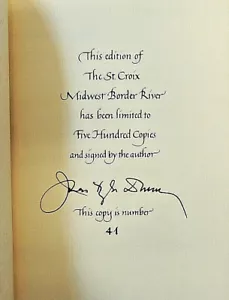 This edition of
The St. Croix
Midwest Border River
has been limited to
Five Hundred Copies
and signed by the author
This copy is number
41